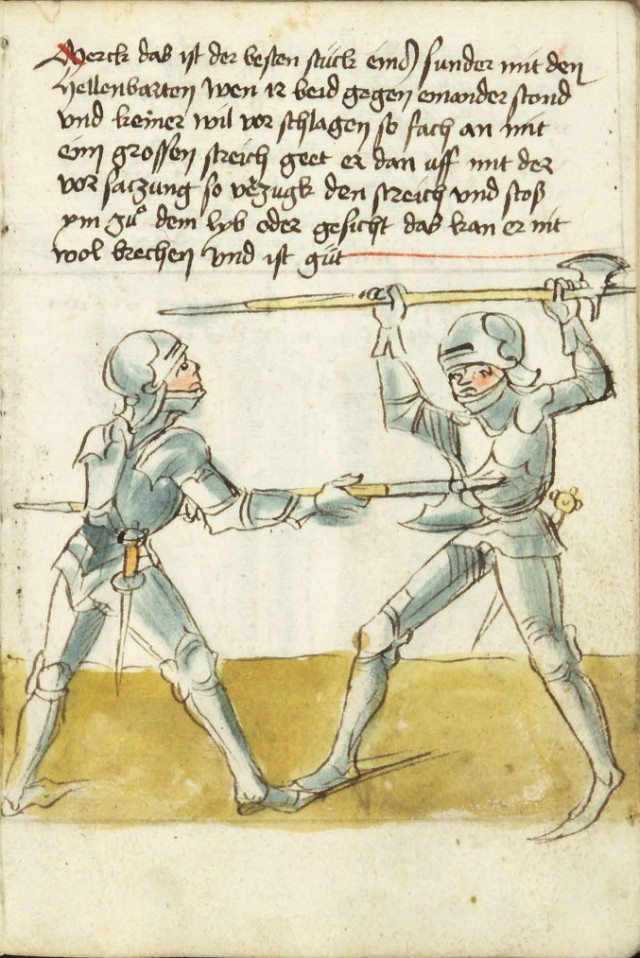 Merck das ist der besten stück eins sunder mit den
Hellenbarten wen ir beid gegen einander stond
vnd keiner wil vor schlagen so fach an mit
eim grossen streich geet er dan uff mit der
vor saczung so verzugk den streich vnd stoß
ym zů dem lyb oder gesicht das kan er nit
wol brechen vnd ist gůt